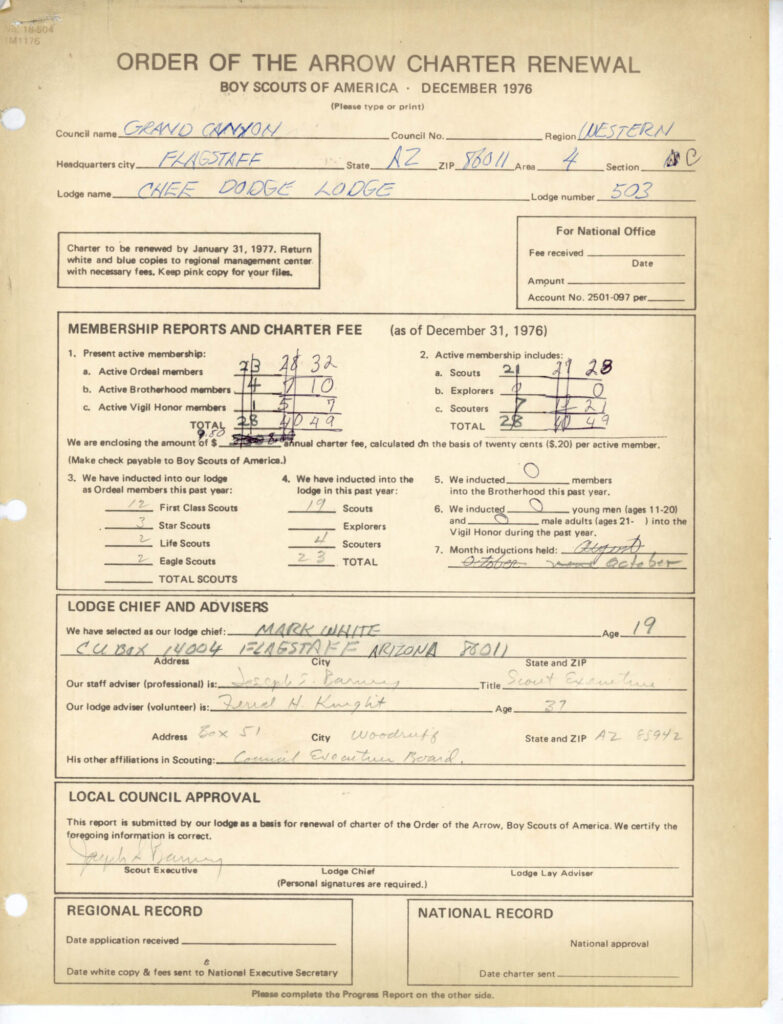 NO. 18-504
1M1176
ORDER OF THE ARROW CHARTER RENEWAL
BOY SCOUTS OF AMERICA · DECEMBER 1976
(Please type or print)
Council name GRAND CANYON Council No. Region WESTERN
Headquarters city FLAGSTAFF State AZ ZIP 86011 Area 4 Section C
Lodge name CHEE DODGE LODGE Lodge number 503
Charter to be renewed by January 31, 1977. Return
white and blue copies to regional management center
with necessary fees. Keep pink copy for your files.
For National Office
Fee received
Date
Amount
Account No. 2501-097 per
MEMBERSHIP REPORTS AND CHARTER FEE (as of December 31, 1976)
1. Present active membership:
a. Active Ordeal members 23 28 32
b. Active Brotherhood members 4 7 10
c. Active Vigil Honor members 1 5 7
TOTAL 28 40 49
2. Active membership includes:
a. Scouts 21 28
b. Explorers 0 0
c. Scouters 7 21
TOTAL 28 40 49
We are enclosing the amount of $ 9.80 annual charter fee, calculated on the basis of twenty cents ($.20) per active member.
(Make check payable to Boy Scouts of America.)
3. We have inducted into our lodge
as Ordeal members this past year:
12 First Class Scouts
3 Star Scouts
2 Life Scouts
2 Eagle Scouts
TOTAL SCOUTS
4. We have inducted into the
lodge in this past year:
19 Scouts
Explorers
4 Scouters
23 TOTAL
5. We inducted 0 members
into the Brotherhood this past year.
6. We inducted 0 young men (ages 11-20)
and 0 male adults (ages 21- ) into the
Vigil Honor during the past year.
7. Months inductions held: August
October October
LODGE CHIEF AND ADVISERS
We have selected as our lodge chief: MARK WHITE Age 19
C.U. BOX 14004 FLAGSTAFF ARIZONA 86011
Address City State and ZIP
Our staff adviser (professional) is: Joseph S. Barney Title Scout Executive
Our lodge adviser (volunteer) is: H. Knight Age 37
Address Box 51 City Woodruff State and ZIP AZ 85942
His other affiliations in Scouting: Council Executive Board.
LOCAL COUNCIL APPROVAL
This report is submitted by our lodge as a basis for renewal of charter of the Order of the Arrow, Boy Scouts of America. We certify the
foregoing information is correct.
Joseph S Barney
Scout Executive Lodge Chief Lodge Lay Adviser
(Personal signatures are required.)
REGIONAL RECORD
Date application received
Date white copy & fees sent to National Executive Secretary
NATIONAL RECORD
National approval
Date charter sent
Please complete the Progress Report on the other side.